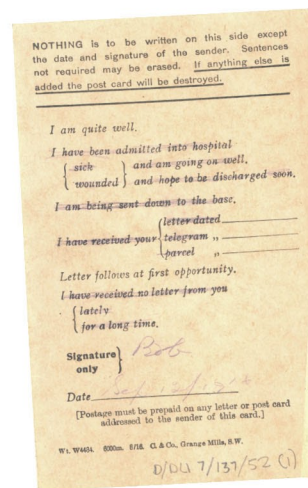 NOTHING is to be written on this side except
the date and signature of the sender. Sentences
not required may be erased. If anything else is
added the post card will be destroyed.
I am quite well.
I have been admitted into hospital
sick and am going on well.
wounded and hope to be discharged soon.
I am being sent down to the base.
letter dated
I have received your telegram „
parcel „
Letter follows at first opportunity.
I have received no letter from you
lately
for a long time.
Signature only Bob
Date
[Postage must be prepaid on any letter or post card
addressed to the sender of this card.]
6/16. C. & Co., Grange Mills, S.W.
D/DLI 7/137/52 (1)